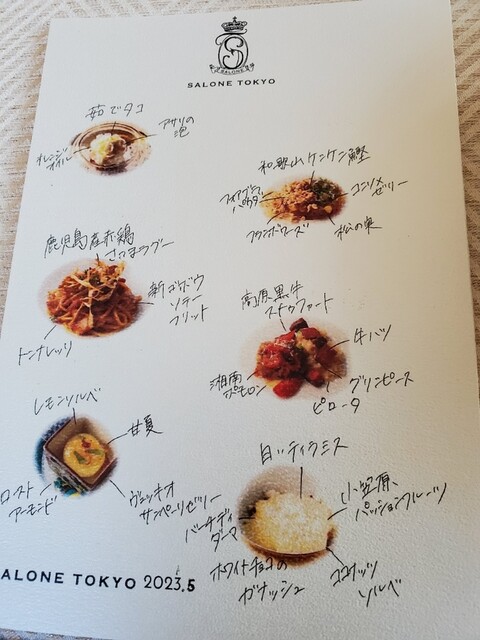 SALONE
SALONE TOKYO
茹でタコ
アサリの
泡
オレンジ
オイル
和歌山ケンケン鰹
フォアグラ
パウダー
コンソメ
ゼリー
フランボワーズ
松の実
鹿児島産赤鶏
さつまラグー
新ゴボウ
ソテー
フリット
トンナレッリ
高原黒牛
ストゥファート
牛ハツ
湘南
ポモロン
グリンピース
ピローラ
レモンソルベ
甘夏
ロースト
アーモンド
ヴェッキオ
サンペーリゼリー
白いティラミス
小笠原、
パッションフルーツ
バーチディ
ダーマ
ホワイトチョコの
ガナッシュ
ココナッツ
ソルベ
ALONE TOKYO 2023.5